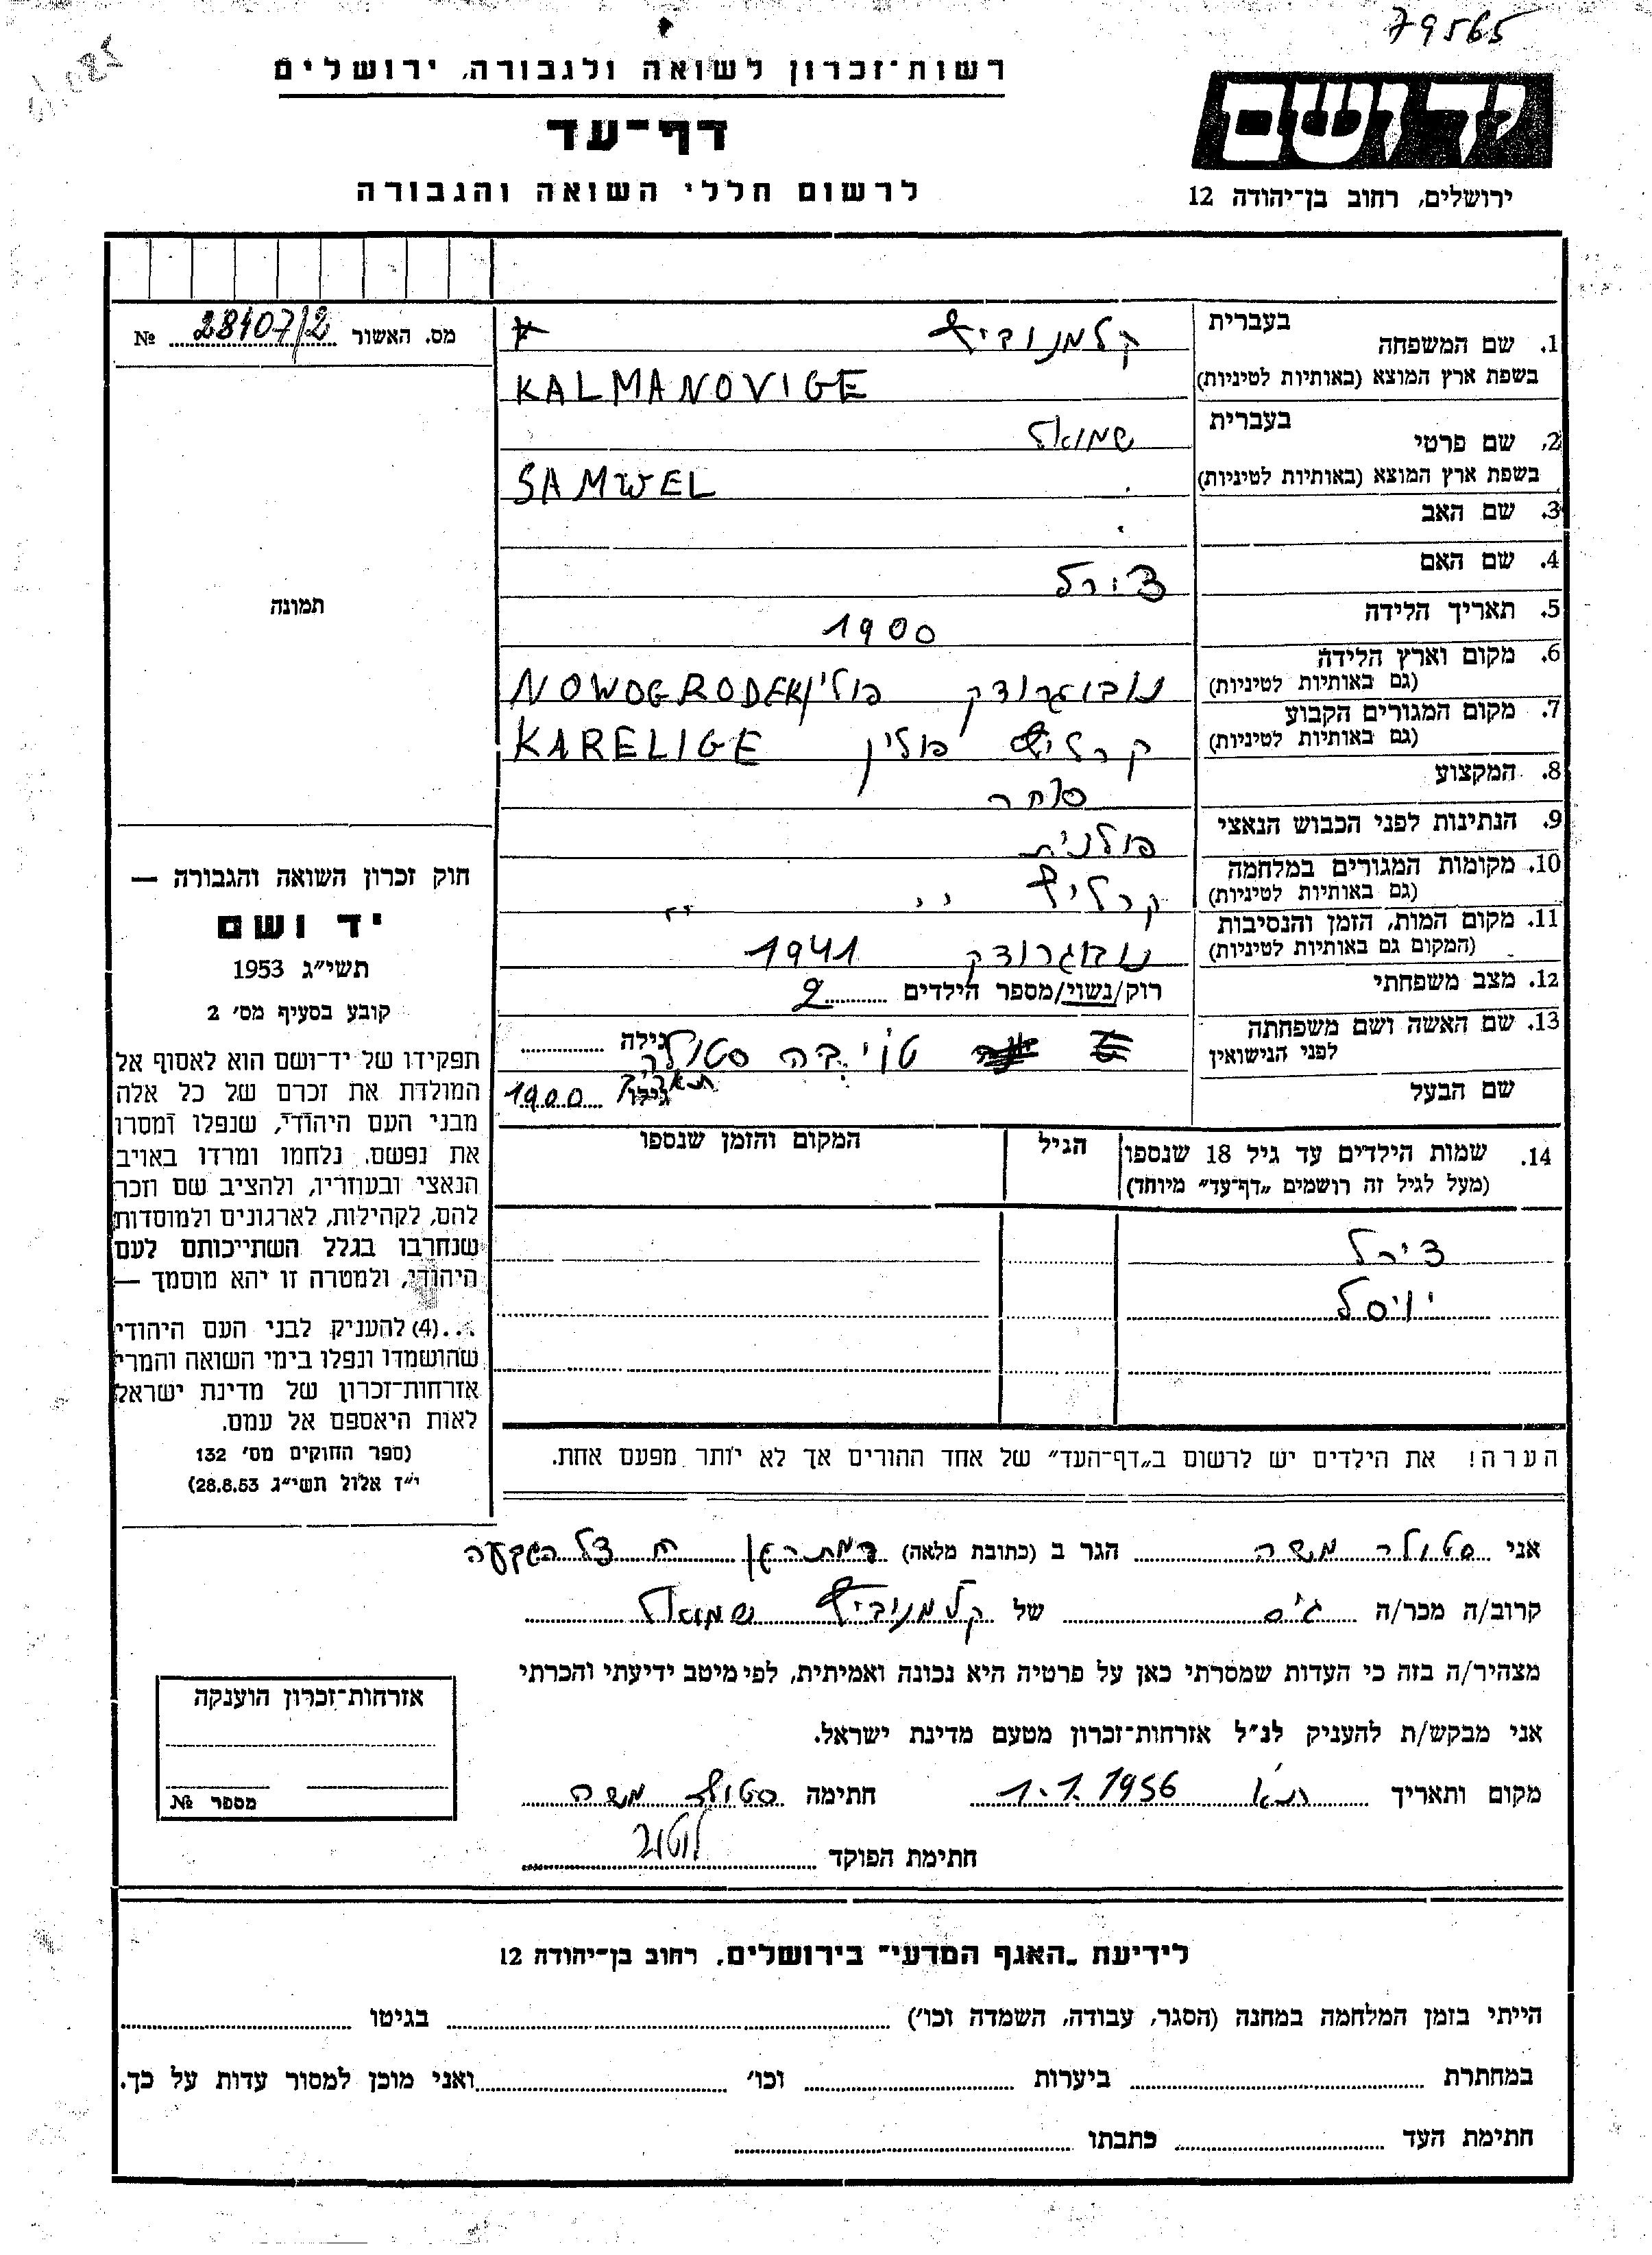 79565
רשות־זכרון לשואה ולגבורה, ירושלים
דף־עד
לרשום חללי השואה והגבורה
יד ושם
ירושלים, רחוב בן־יהודה 12
מס. האשור 28407/2 №
תמונה
חוק זכרון השואה והגבורה —
יד ושם
תשי״ג 1953
קובע בסעיף מס׳ 2
תפקידו של יד־ושם הוא לאסוף אל
המולדת את זכרם של כל אלה
מבני העם היהודי, שנפלו ומסרו
את נפשם, נלחמו ומרדו באויב
הנאצי ובעוזריו, ולהציב שם וזכר
להם, לקהילות, לארגונים ולמוסדות
שנחרבו בגלל השתייכותם לעם
היהודי, ולמטרה זו יהא מוסמך —
...(4) להעניק לבני העם היהודי
שהושמדו ונפלו בימי השואה והמרי
אזרחות־זכרון של מדינת ישראל
לאות היאספם אל עמם.
(ספר החוקים מס׳ 132
י״ז אלול תשי״ג 28.8.53)
1. שם המשפחה בעברית קלמנוביץ
בשפת ארץ המוצא (באותיות לטיניות) KALMANOVIGE
2. שם פרטי בעברית שמואל
בשפת ארץ המוצא (באותיות לטיניות) SAMWEL
3. שם האב
4. שם האם צירל
5. תאריך הלידה 1900
6. מקום וארץ הלידה (גם באותיות לטיניות) נובוגרודק פולין NOWOGRODEK
7. מקום המגורים הקבוע (גם באותיות לטיניות) קרליץ פולין KARELIGE
8. המקצוע סוחר
9. הנתינות לפני הכבוש הנאצי פולנית
10. מקומות המגורים במלחמה (גם באותיות לטיניות) קרליץ ״ ״
11. מקום המות, הזמן והנסיבות (המקום גם באותיות לטיניות) נובגרודק 1941
12. מצב משפחתי רוק/נשוי/מספר הילדים 2
13. שם האשה ושם משפחתה לפני הנישואין טויבה סטולר גילה
שם הבעל תאריך 1900
14. שמות הילדים עד גיל 18 שנספו הגיל המקום והזמן שנספו
(מעל לגיל זה רושמים „דף־עד״ מיוחד)
צירל
יוסל
הערה! את הילדים יש לרשום ב„דף־העד״ של אחד ההורים אך לא יותר מפעם אחת.
אני סטולר משה הגר ב (כתובת מלאה) רמת הגן
קרוב/ה מכר/ה גיס של קלמנוביץ שמואל
מצהיר/ה בזה כי העדות שמסרתי כאן על פרטיה היא נכונה ואמיתית, לפי מיטב ידיעתי והכרתי
אני מבקש/ת להעניק לנ״ל אזרחות־זכרון מטעם מדינת ישראל.
מקום ותאריך ת״א 1.1.1956 חתימה סטולר משה
חתימת הפוקד
אזרחות־זכרון הוענקה
מספר №
לידיעת „האגף המדעי״ בירושלים, רחוב בן־יהודה 12
הייתי בזמן המלחמה במחנה (הסגר, עבודה, השמדה וכו׳) בגיטו
במחתרת ביערות וכו׳ ואני מוכן למסור עדות על כך.
חתימת העד כתבתו